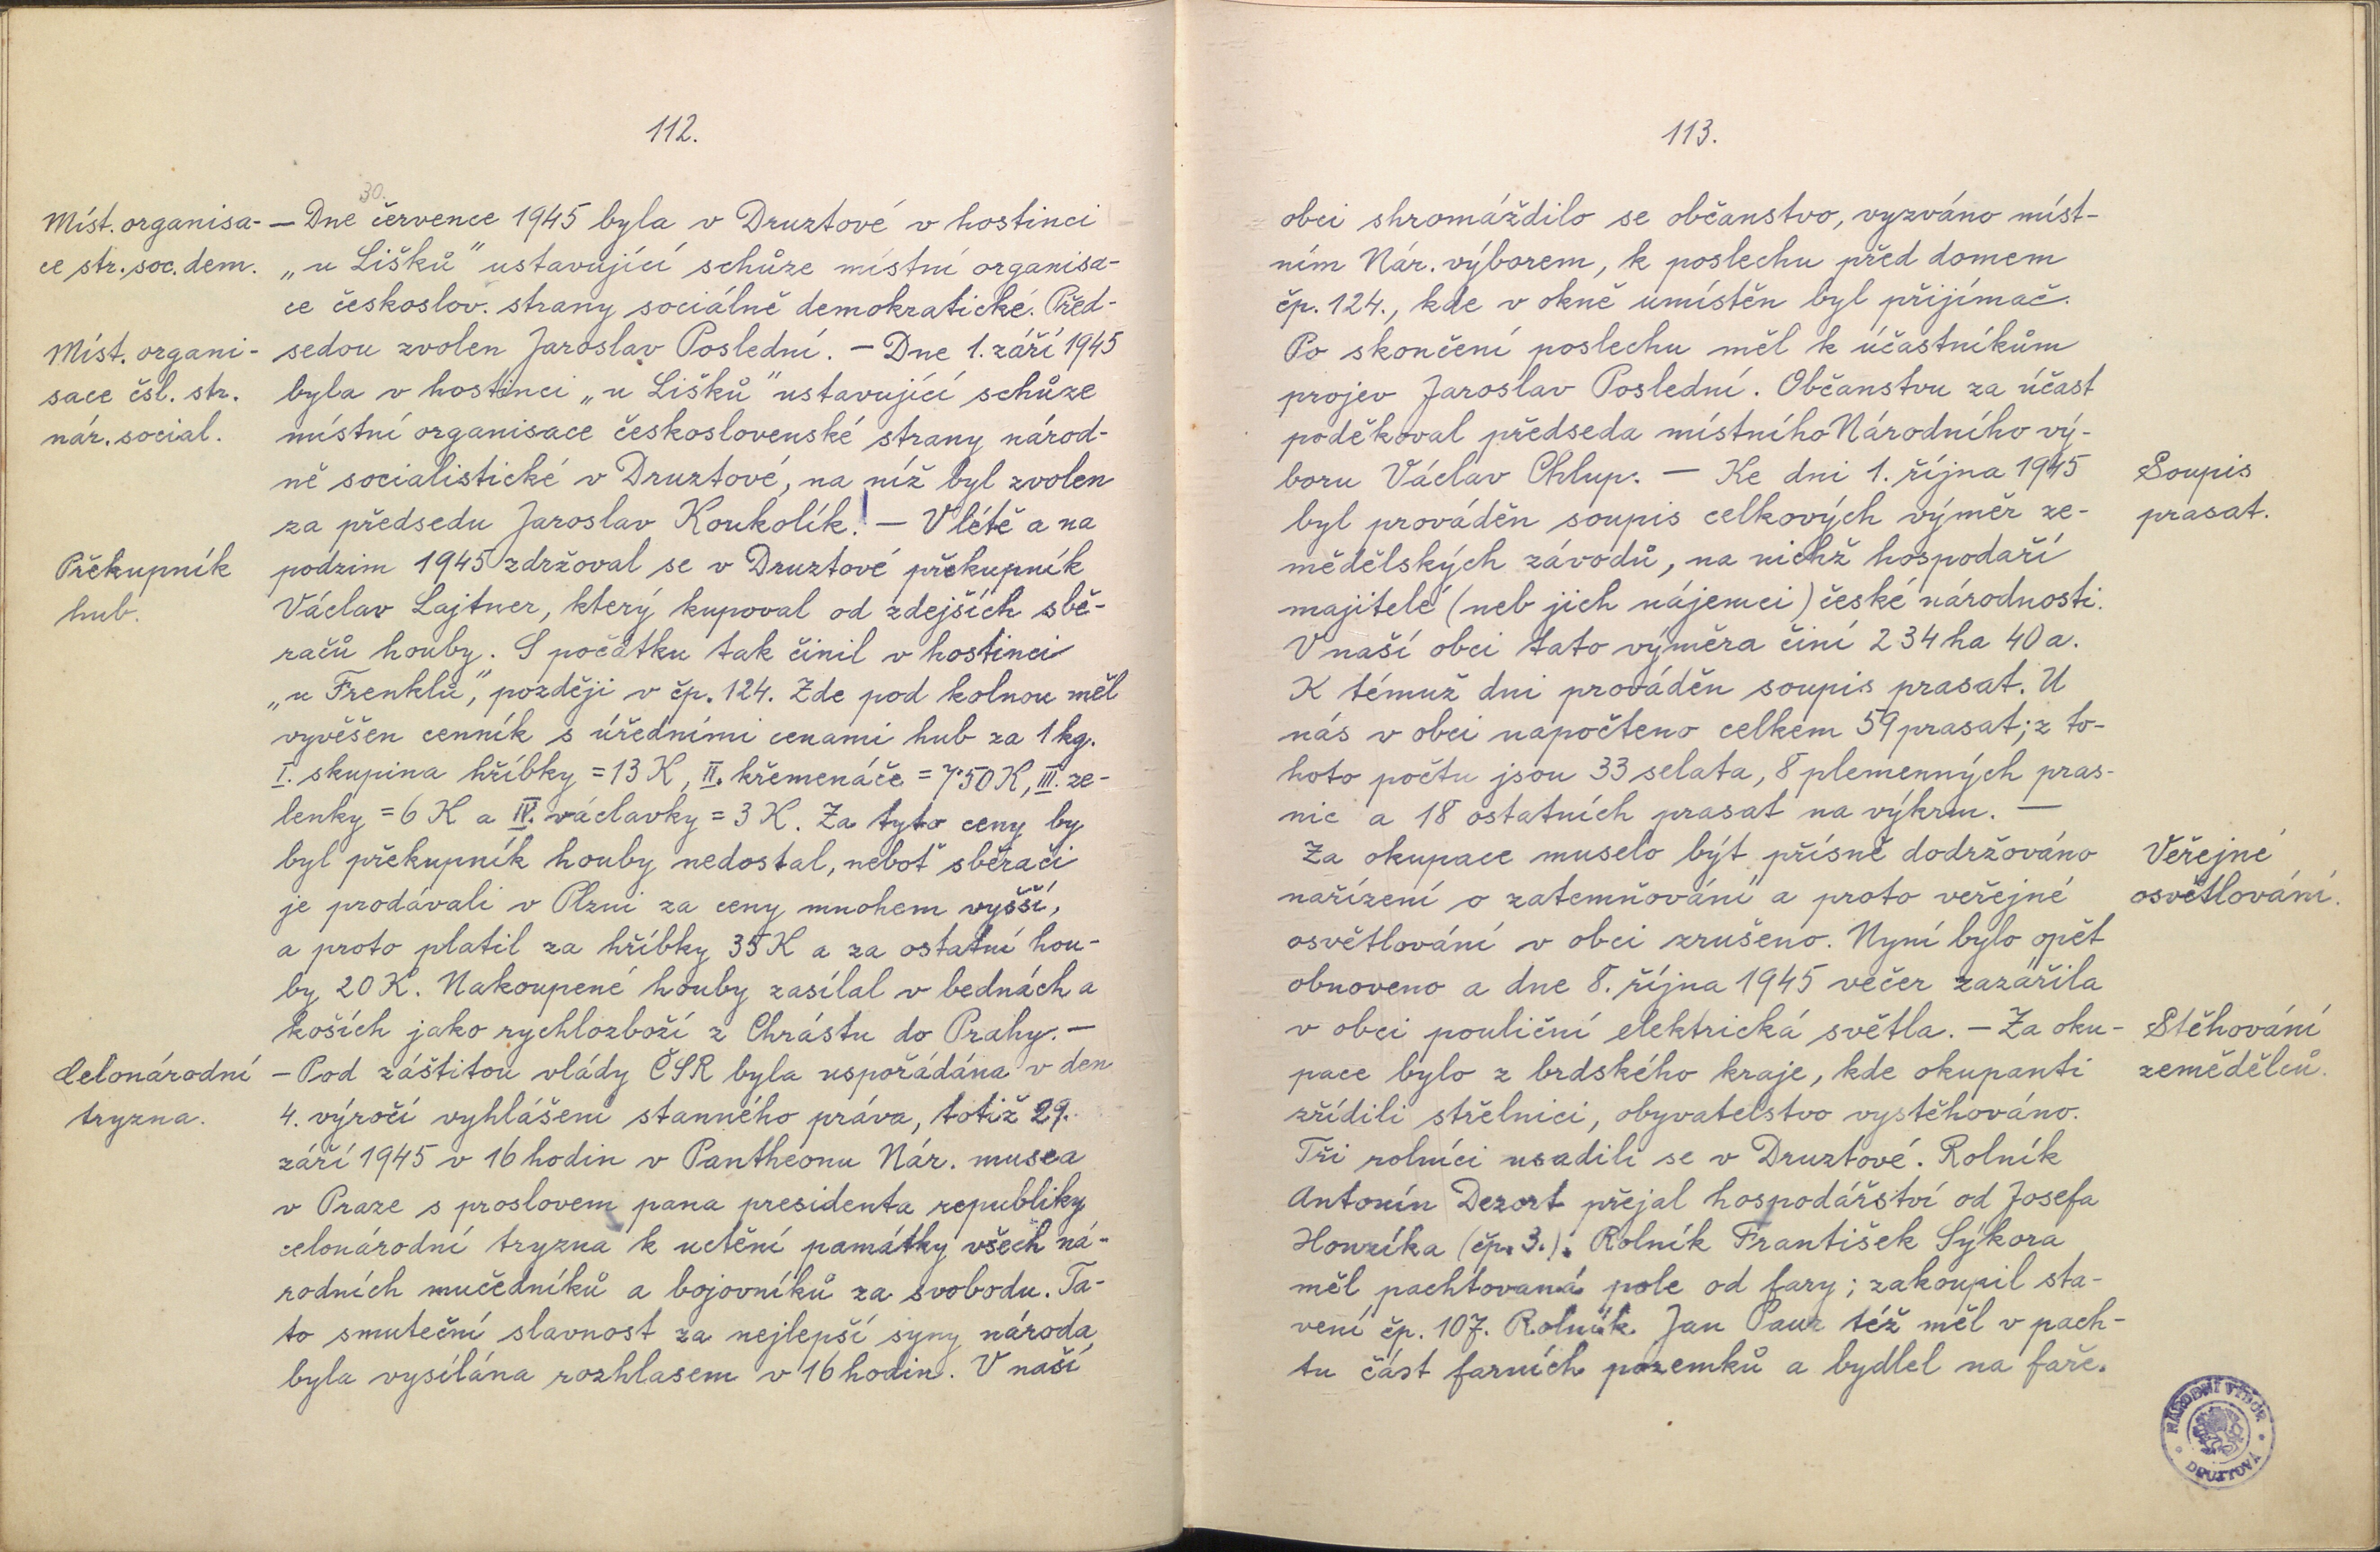 112.
30.
Míst. organisa-
ce str. soc. dem.
— Dne července 1945 byla v Druztové v hostinci
„u Lišků" ustavující schůze místní organisa-
ce českoslov. strany sociálně demokratické. Před-
Míst. organi-
sace čsl. str.
nár. social.
sedou zvolen Jaroslav Poslední. — Dne 1. září 1945
byla v hostinci „u Lišků" ustavující schůze
místní organisace československé strany národ-
ně socialistické v Druztové, na níž byl zvolen
za předsedu Jaroslav Koukolík. — V létě a na
Překupník
hub.
podzim 1945 zdržoval se v Druztové překupník
Václav Lajtner, který kupoval od zdejších sbě-
račů houby. S počátku tak činil v hostinci
„u Frenklů", později v čp. 124. Zde pod kolnou měl
vyvěšen cenník s úředními cenami hub za 1 kg.
I. skupina hříbky = 13 K, II. křemenáče = 7·50 K, III. ze-
lenky = 6 K a IV. václavky = 3 K. Za tyto ceny by
byl překupník houby nedostal, neboť sběrači
je prodávali v Plzni za ceny mnohem vyšší,
a proto platil za hříbky 35 K a za ostatní hou-
by 20 K. Nakoupené houby zasílal v bednách a
koších jako rychlozboží z Chrástu do Prahy. —
Celonárodní
tryzna.
— Pod záštitou vlády ČSR byla uspořádána v den
4. výročí vyhlášení stanného práva, totiž 29.
září 1945 v 16 hodin v Pantheonu Nár. musea
v Praze s proslovem pana presidenta republiky
celonárodní tryzna k uctění památky všech ná-
rodních mučedníků a bojovníků za svobodu. Ta-
to smuteční slavnost za nejlepší syny národa
byla vysílána rozhlasem v 16 hodin. V naší
113.
obci shromáždilo se občanstvo, vyzváno míst-
ním Nár. výborem, k poslechu před domem
čp. 124., kde v okně umístěn byl přijímač.
Po skončení poslechu měl k účastníkům
projev Jaroslav Poslední. Občanstvu za účast
poděkoval předseda místního Národního vý-
boru Václav Chlup. — Ke dni 1. října 1945
Soupis
prasat.
byl prováděn soupis celkových výměr ze-
mědělských závodů, na nichž hospodaří
majitelé (neb jich nájemci) české národnosti.
V naší obci tato výměra činí 234 ha 40 a.
K témuž dni prováděn soupis prasat. U
nás v obci napočteno celkem 59 prasat; z to-
hoto počtu jsou 33 selata, 8 plemenných pras-
nic a 18 ostatních prasat na výkrm. —
Za okupace muselo být přísně dodržováno
Veřejné
osvětlování.
nařízení o zatemňování a proto veřejné
osvětlování v obci zrušeno. Nyní bylo opět
obnoveno a dne 8. října 1945 večer zazářila
v obci pouliční elektrická světla. — Za oku-
Stěhování
zemědělců.
pace bylo z brdského kraje, kde okupanti
zřídili střelnici, obyvatelstvo vystěhováno.
Tři rolníci usadili se v Druztové. Rolník
Antonín Dezort přejal hospodářství od Josefa
Honzíka (čp. 3.). Rolník František Sýkora
měl pachtovaná pole od fary; zakoupil sta-
vení čp. 107. Rolník Jan Paur též měl v pach-
tu část farních pozemků a bydlel na faře.
NÁRODNÍ VÝBOR
DRUZTOVÁ